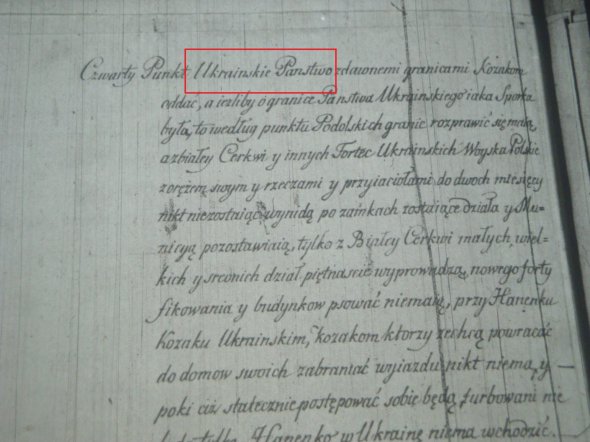 Czwarty Punkt Ukrainskie Panstwo zdawnemi granicami Kozakom
oddać, a ieżliby o granice Panstwa Ukrainskiego iaka Sporka
była, to według punktu Podolskich granic rozprawić się maią,
a zbiałey Cerkwi y innych Fortec Ukrainskich Woyska Polskie
zorężem swym y rzeczami y przyiaciołami do dwoch miesięcy
nikt niezostaiąc wynidą po zamkach zostaiące działa y Mu-
nicyą pozostawiaią, tylko z Białey Cerkwi małych, wiel-
kich y srednich dział piętnascie wyprowadzą, nowego forty
fikowania y budynkow psować niemaią, przy Hanenku
Kozaku Ukrainskim, kozakom ktorzy zechcą powracać
do domow swoich zabraniać wyiazdu nikt niema, y
poki ciż statecznie postępować sobie będą, turbowani nie
tylko Hanenko w Ukrainę niema wchodzić.